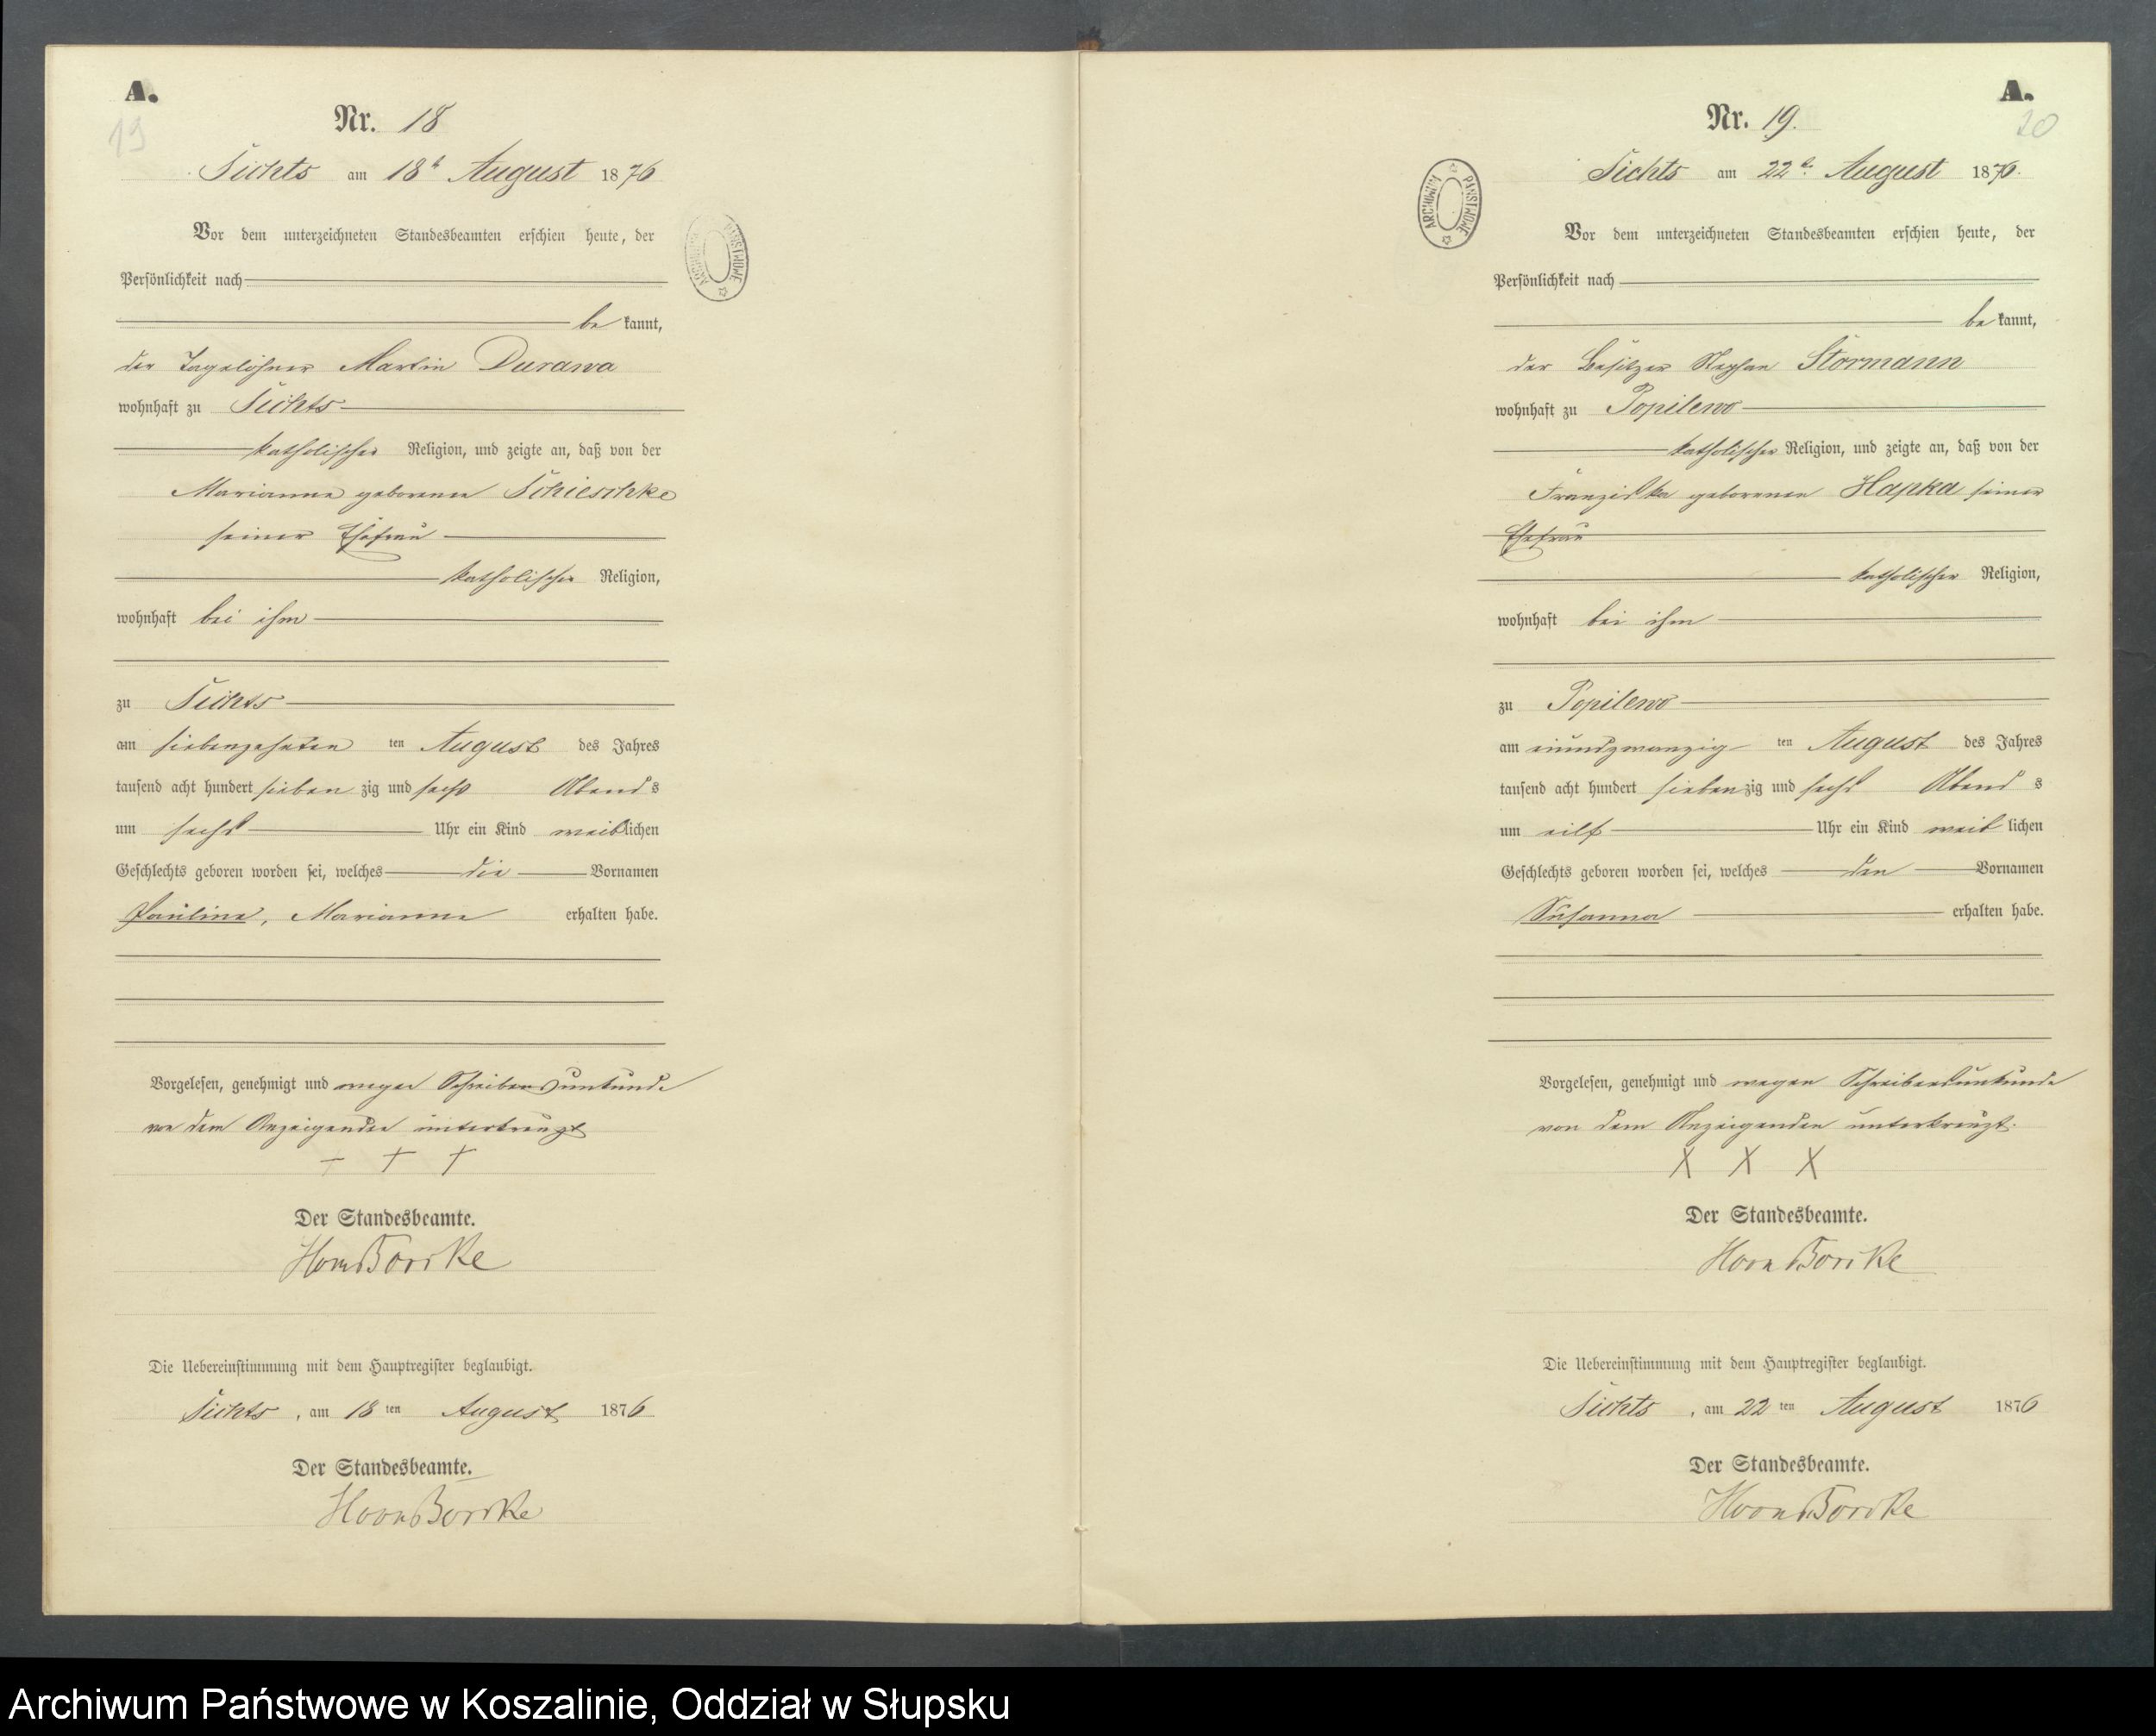 A.
19
Nr. 18
Sichts am 18t August 1876
Vor dem unterzeichneten Standesbeamten erschien heute, der
Persönlichkeit nach
be kannt,
der Tagelöhner Martin Durawa
wohnhaft zu Sichts
katholischer Religion, und zeigte an, daß von der
Marianna geborenen Schieschke
seiner Ehefrau
katholischer Religion,
wohnhaft bei ihm
zu Sichts
am siebenzehnten ten August des Jahres
tausend acht hundert sieben zig und sechs Abend s
um sechs Uhr ein Kind weiblichen
Geschlechts geboren worden sei, welches die Vornamen
Paulina, Marianna erhalten habe.
Vorgelesen, genehmigt und wegen Schreibensunkunde
von dem Anzeigenden unterkreuzt
+ + +
Der Standesbeamte.
HvonBorcke
Die Uebereinstimmung mit dem Hauptregister beglaubigt.
Sichts, am 18 ten August 1876
Der Standesbeamte.
HvonBorcke
ARCHIWUM PAŃSTWOWE
A.
20
Nr. 19.
Sichts am 22t August 1876.
Vor dem unterzeichneten Standesbeamten erschien heute, der
Persönlichkeit nach
be kannt,
der Besitzer Stephan Stormann
wohnhaft zu Popilewo
katholischer Religion, und zeigte an, daß von der
Franziska geborenen Hapka seiner
Ehefrau
katholischer Religion,
wohnhaft bei ihm
zu Popilewo
am einundzwanzig ten August des Jahres
tausend acht hundert sieben zig und sechs Abend s
um eilf Uhr ein Kind weib lichen
Geschlechts geboren worden sei, welches den Vornamen
Susanna erhalten habe.
Vorgelesen, genehmigt und wegen Schreibensunkunde
von dem Anzeigenden unterkreuzt.
X X X
Der Standesbeamte.
HvonBorcke
Die Uebereinstimmung mit dem Hauptregister beglaubigt.
Sichts, am 22 ten August 1876
Der Standesbeamte.
HvonBorcke
ARCHIWUM PAŃSTWOWE
Archiwum Państwowe w Koszalinie, Oddział w Słupsku